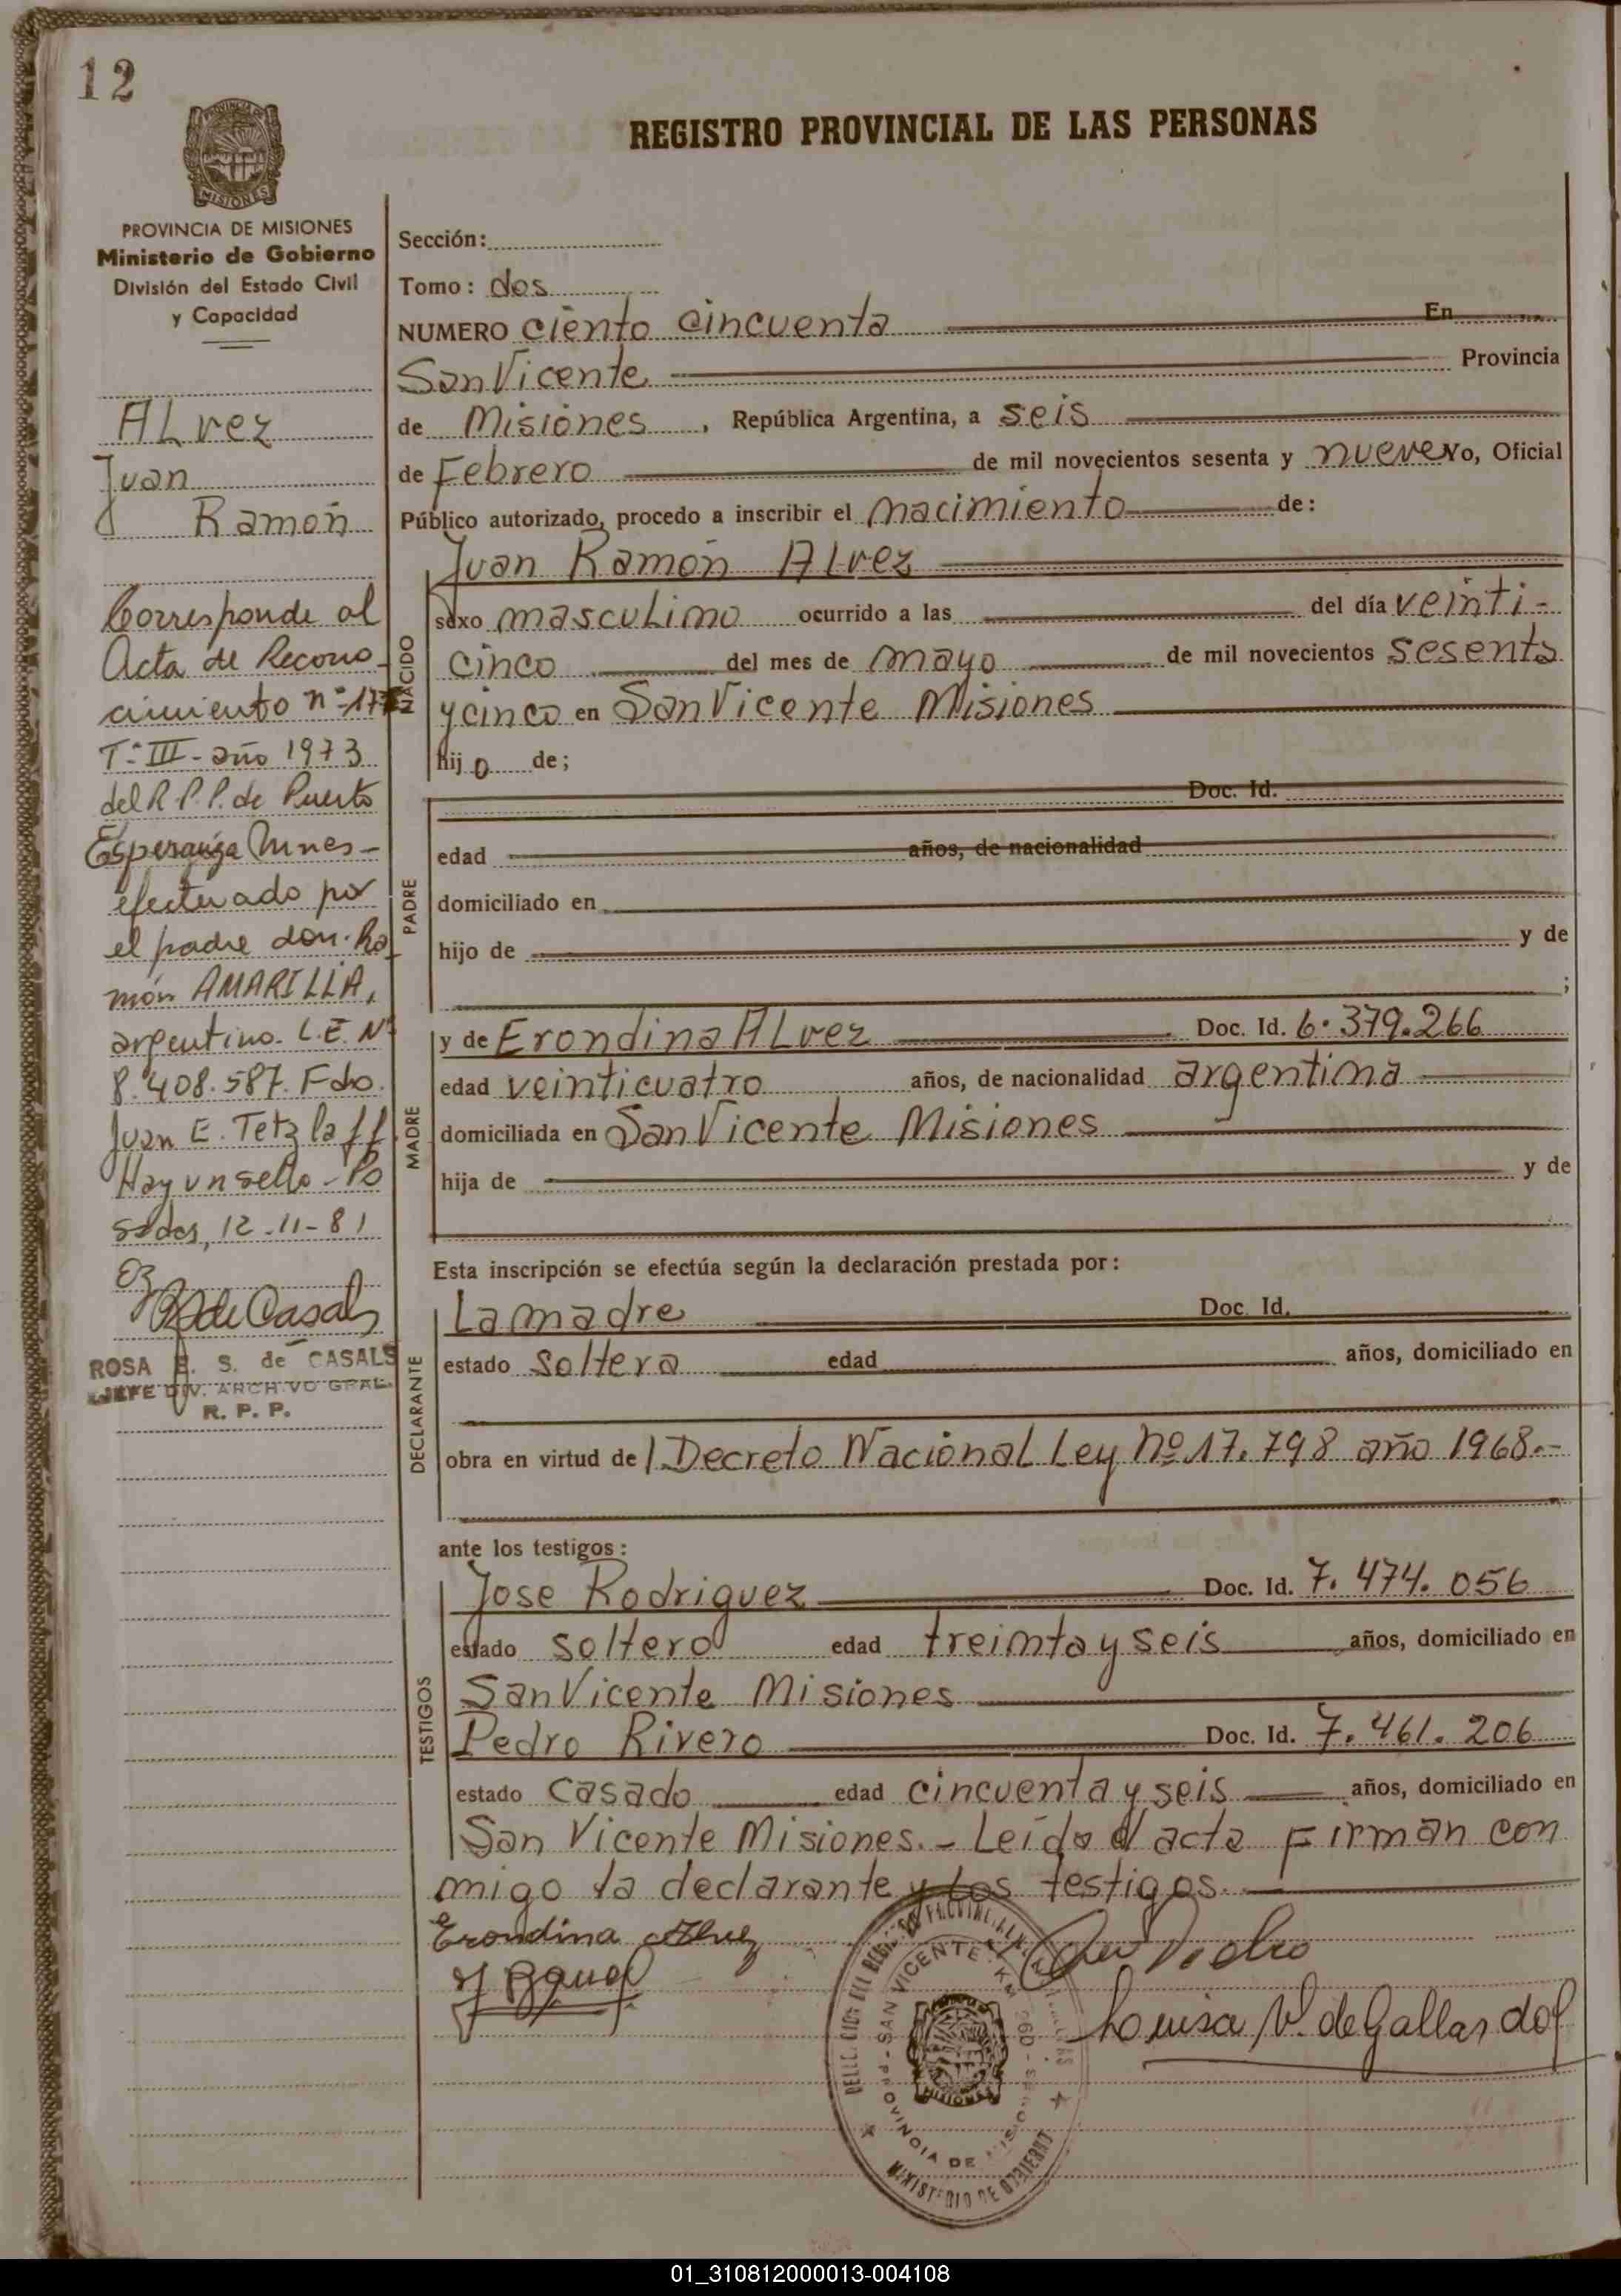 12
REGISTRO PROVINCIAL DE LAS PERSONAS
MISIONES
PROVINCIA DE MISIONES
Ministerio de Gobierno
División del Estado Civil
y Capacidad
ALvez
Juan
Ramón
Corresponde al
Acta de Recono-
cimiento n°
T° III - año 1973
del R.P.P. de Puerto
Esperanza Mnes-
efectuado por
el padre don Ra-
món AMARILLA,
argentino. L.E. N°
8.408.587. Fdo.
Juan E. Tetzlaff.
Hay un sello - Po
sadas, 12-11-81
de Casals
ROSA E. S. de CASALS
JEFE DIV. ARCHIVO GRAL.
R. P. P.
Sección:
Tomo: dos
NUMERO ciento cincuenta En
San Vicente Provincia
de Misiones, República Argentina, a seis
de Febrero de mil novecientos sesenta y nueve Yo, Oficial
Público autorizado, procedo a inscribir el nacimiento de:
NACIDO
Juan Ramón ALvez
sexo mascuLino ocurrido a las del día veinti-
cinco del mes de mayo de mil novecientos sesenta
y cinco en San Vicente Misiones
hijo de;
PADRE
Doc. Id.
edad años, de nacionalidad
domiciliado en
hijo de y de
;
MADRE
y de Erondina ALvez Doc. Id. 6.379.266
edad veinticuatro años, de nacionalidad argentina
domiciliada en San Vicente Misiones
hija de y de
Esta inscripción se efectúa según la declaración prestada por:
DECLARANTE
La madre Doc. Id.
estado soltera edad años, domiciliado en
obra en virtud de l Decreto Nacional Ley Nº 17.798 año 1968.-
ante los testigos:
TESTIGOS
Jose Rodriguez Doc. Id. 7.474.056
estado soltero edad treinta y seis años, domiciliado en
San Vicente Misiones
Pedro Rivero Doc. Id. 7.461.206
estado casado edad cincuenta y seis años, domiciliado en
San Vicente Misiones.- Leída el acta Firman con
migo la declarante y Los testigos.
Erondina Alvez
Louisa V. de Gallardo
SAN VICENTE
PROVINCIA DE MISIONES
MINISTERIO DE GOBIERNO
MISIONES
01_310812000013-004108